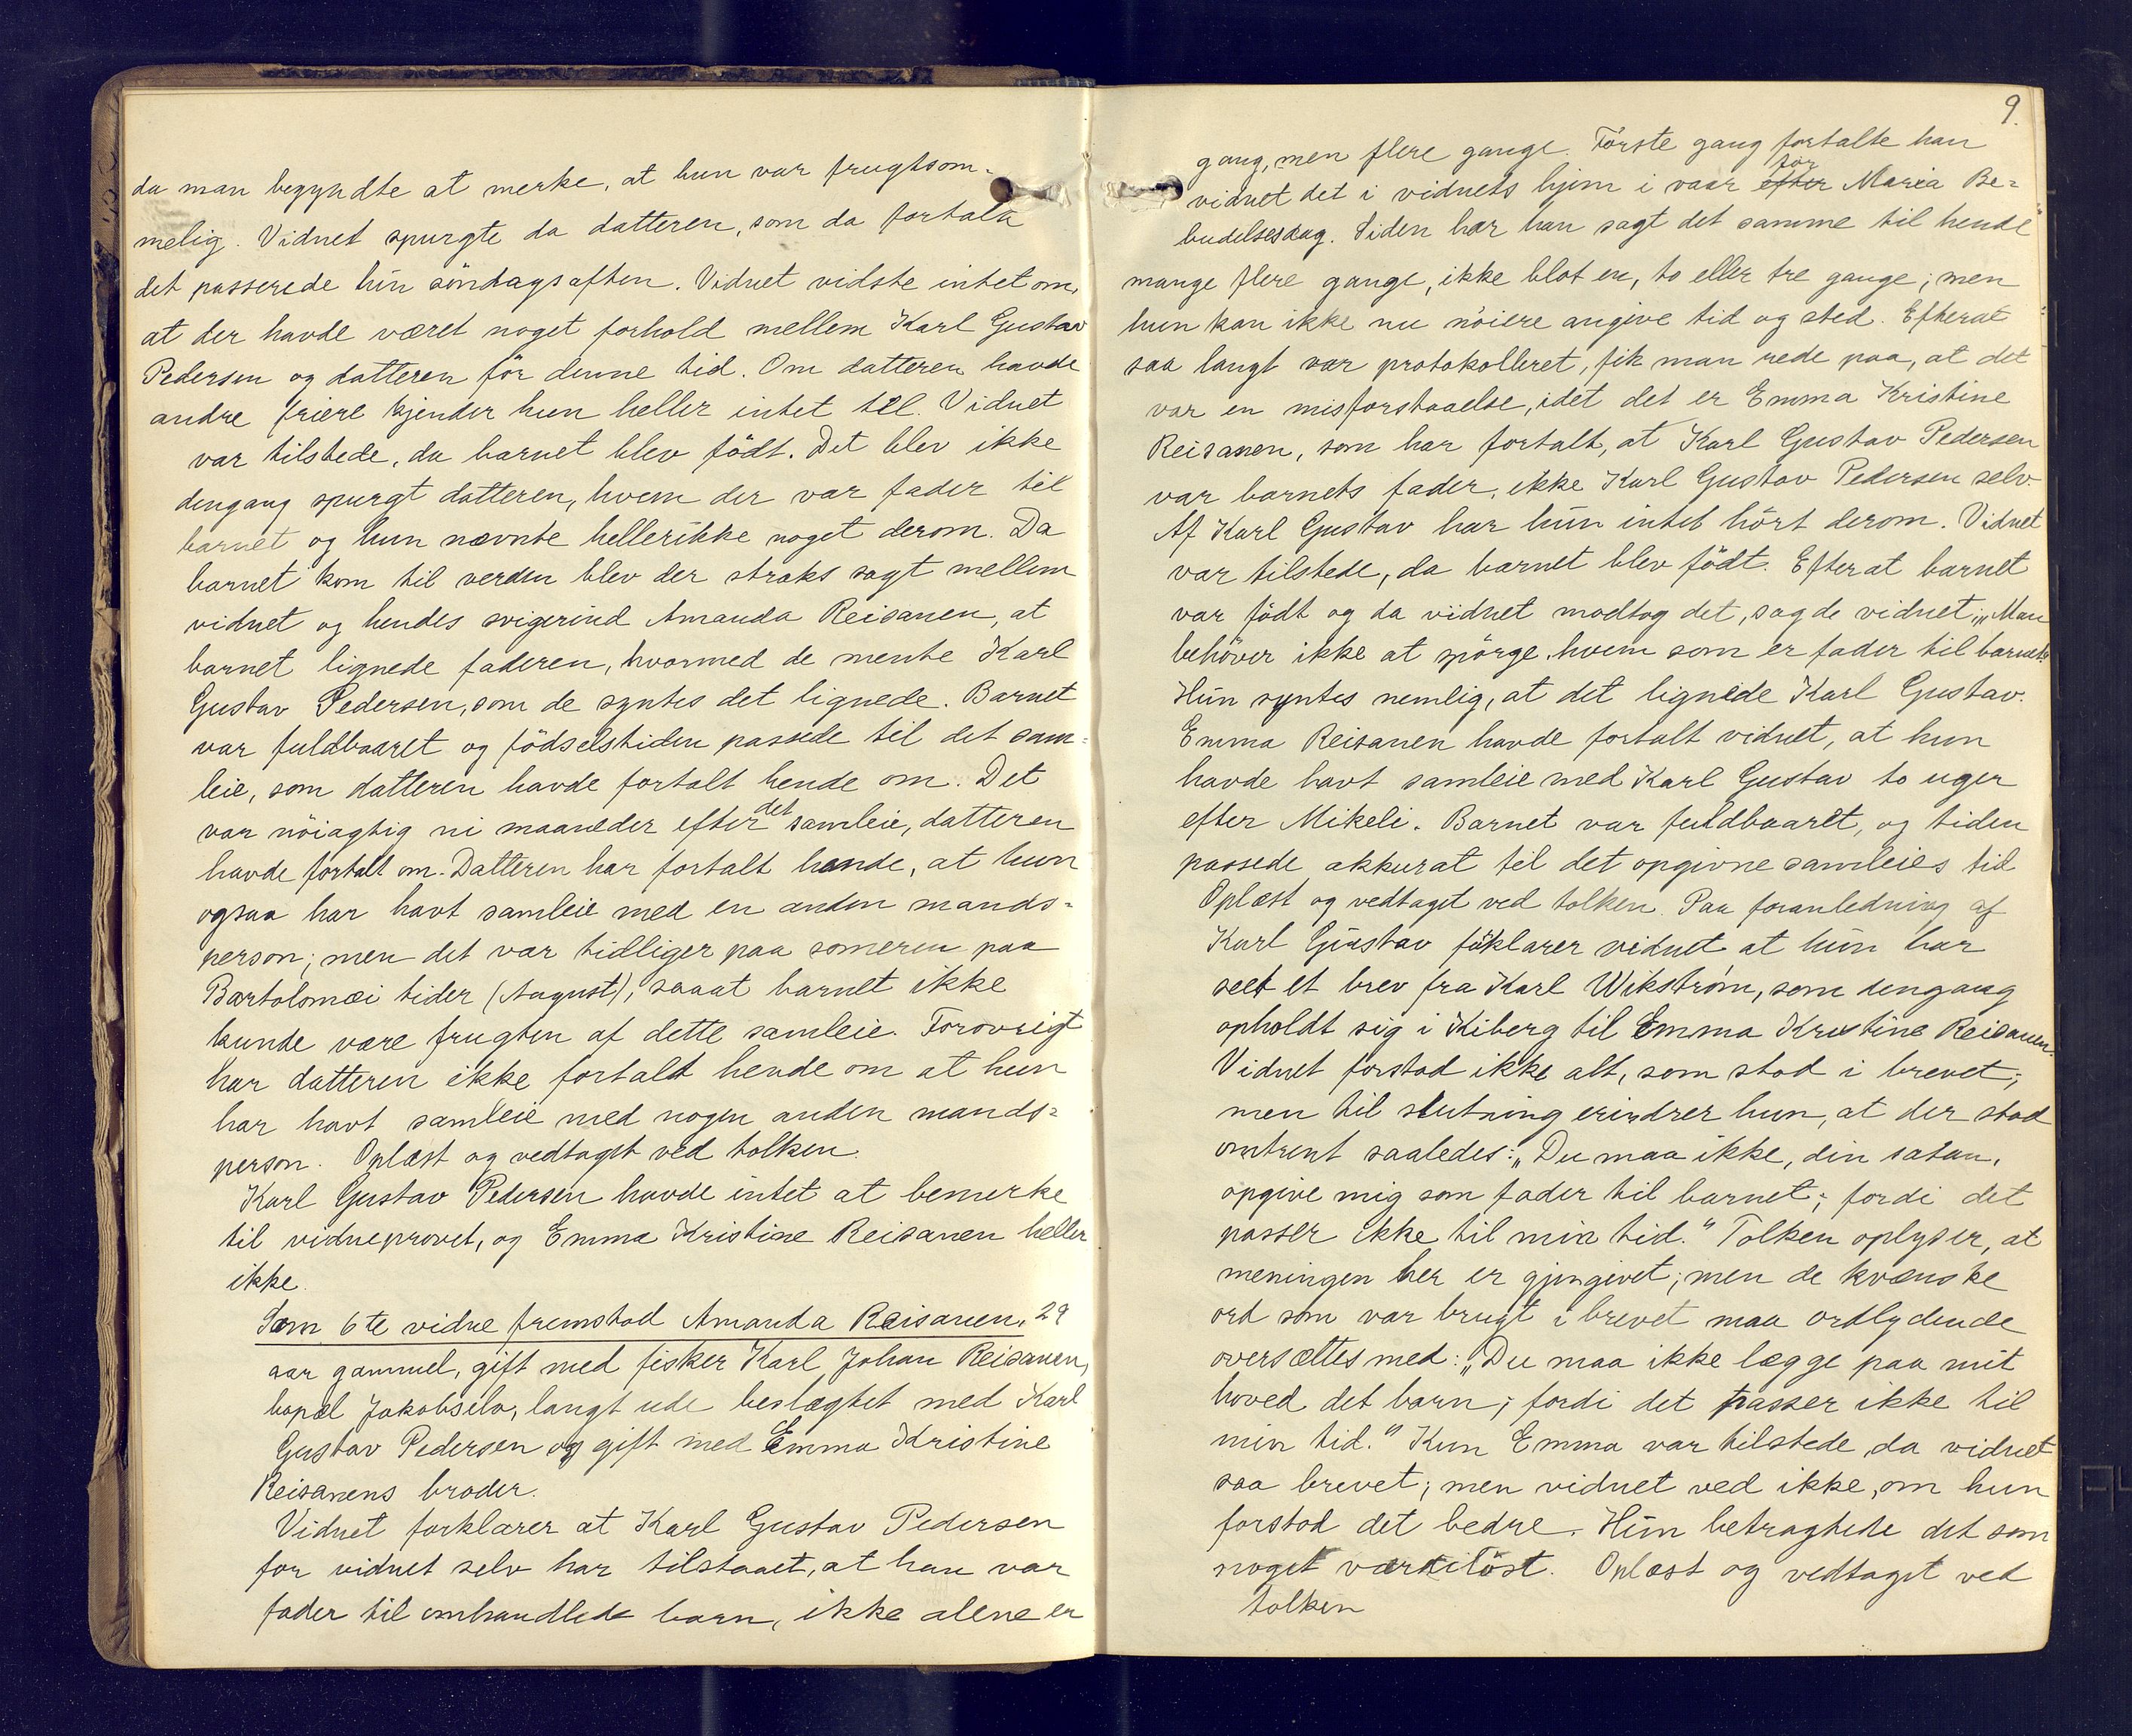 da man begyndte at merke, at hun var frugtsom-
melig. Vidnet spurgte da datteren, som da fortalte
det passerede hin söndagsaften. Vidnet vidste intet om,
at der havde været noget forhold mellem Karl Gustav
Pedersen og datteren för denne tid. Om datteren havde
andre friere kjender hun heller intet til. Vidnet
var tilstede, da barnet blev födt. Det blev ikke
dengang spurgt datteren, hvem der var fader til
barnet og hun nævnte hellerikke noget derom. Da
barnet kom til verden blev der straks sagt mellem
vidnet og hendes svigerind Amanda Reisanen, at
barnet lignede faderen, hvormed de mente Karl
Gustav Pedersen, som de syntes det lignede. Barnet
var fuldbaaret og födselstiden passede til det sam=
leie, som datteren havde fortalt hende om. Det
var nöiagtig ni maaneder efter det samleie, datteren
havde fortalt om. Datteren har fortalt hende, at hun
ogsaa har havt samleie med en anden mands=
person; men det var tidliger paa someren paa
Bartolomæi tider (August), saaat barnet ikke
kunde være frugten af dette samleie. Forøvrigt
har datteren ikke fortalt hende om at hun
har havt samleie med nogen anden mands=
person. Oplæst og vedtaget ved tolken.
Karl Gustav Pedersen havde intet at bemerke
til vidneprovet, og Emma Kristine Reisanen heller
ikke.
Som 6te vidne fremstod Amanda Reisanen, 29
aar gammel, gift med fisker Karl Johan Reisanen,
bopæl Jakobselv, langt ude beslægtet med Karl
Gustav Pedersen og gift med Emma Kristine
Reisanens broder.
Vidnet forklarer at Karl Gustav Pedersen
for vidnet selv har tilstaaet, at han var
fader til omhandlede barn, ikke alene en
9.
gang, men flere gange. Förste gang fortalte han
vidnet det i vidnets hjem i vaar efter för Maria Be=
budelsesdag. Siden har han sagt det samme til hende
mange flere gange, ikke blot en, to eller tre gange; men
hun kan ikke nu nöiere angive tid og sted. Efterat
saa langt var protokolleret, fik man rede paa, at det
var en misforstaaelse, idet det er Emma Kristine
Reisanen, som har fortalt, at Karl Gustav Pedersen
var barnets fader, ikke Karl Gustav Pedersen selv.
Af Karl Gustav har hun intet hört derom. Vidnet
var tilstede, da barnet blev födt. Efterat barnet
var födt og da vidnet modtog det, sagde vidnet: „Man
behöver ikke at spörge hvem som er fader til barnet."
Hun syntes nemlig, at det lignede Karl Gustav.
Emma Reisanen havde fortalt vidnet, at hun
havde havt samleie med Karl Gustav to uger
efter Mikeli. Barnet var fuldbaaret, og tiden
passede akkurat til det opgivne samleies tid
Oplæst og vedtaget ved tolken. Paa foranledning af
Karl Gustav föklarer vidnet at hun har
seet et brev fra Karl Wikstrøm, som dengang
opholdt sig i Kiberg til Emma Kristine Reisanen.
Vidnet forstod ikke alt, som stod i brevet;
men til slutning erindrer hun, at der stod
omtrent saaledes: „Du maa ikke, din satan,
opgive mig som fader til barnet; fordi det
passer ikke til min tid." Tolken oplyser, at
meningen her er gjengivet; men de kvænske
ord som var brugt i brevet maa ordlydende
oversættes med: „Du maa ikke lægge paa mit
hoved det barn; fordi det passer ikke til
min tid." Kun Emma var tilstede, da vidnet
saa brevet; men vidnet ved ikke, om hun
forstod det bedre. Hun betragtede det som
noget værdilöst. Oplæst og vedtaget ved
tolken